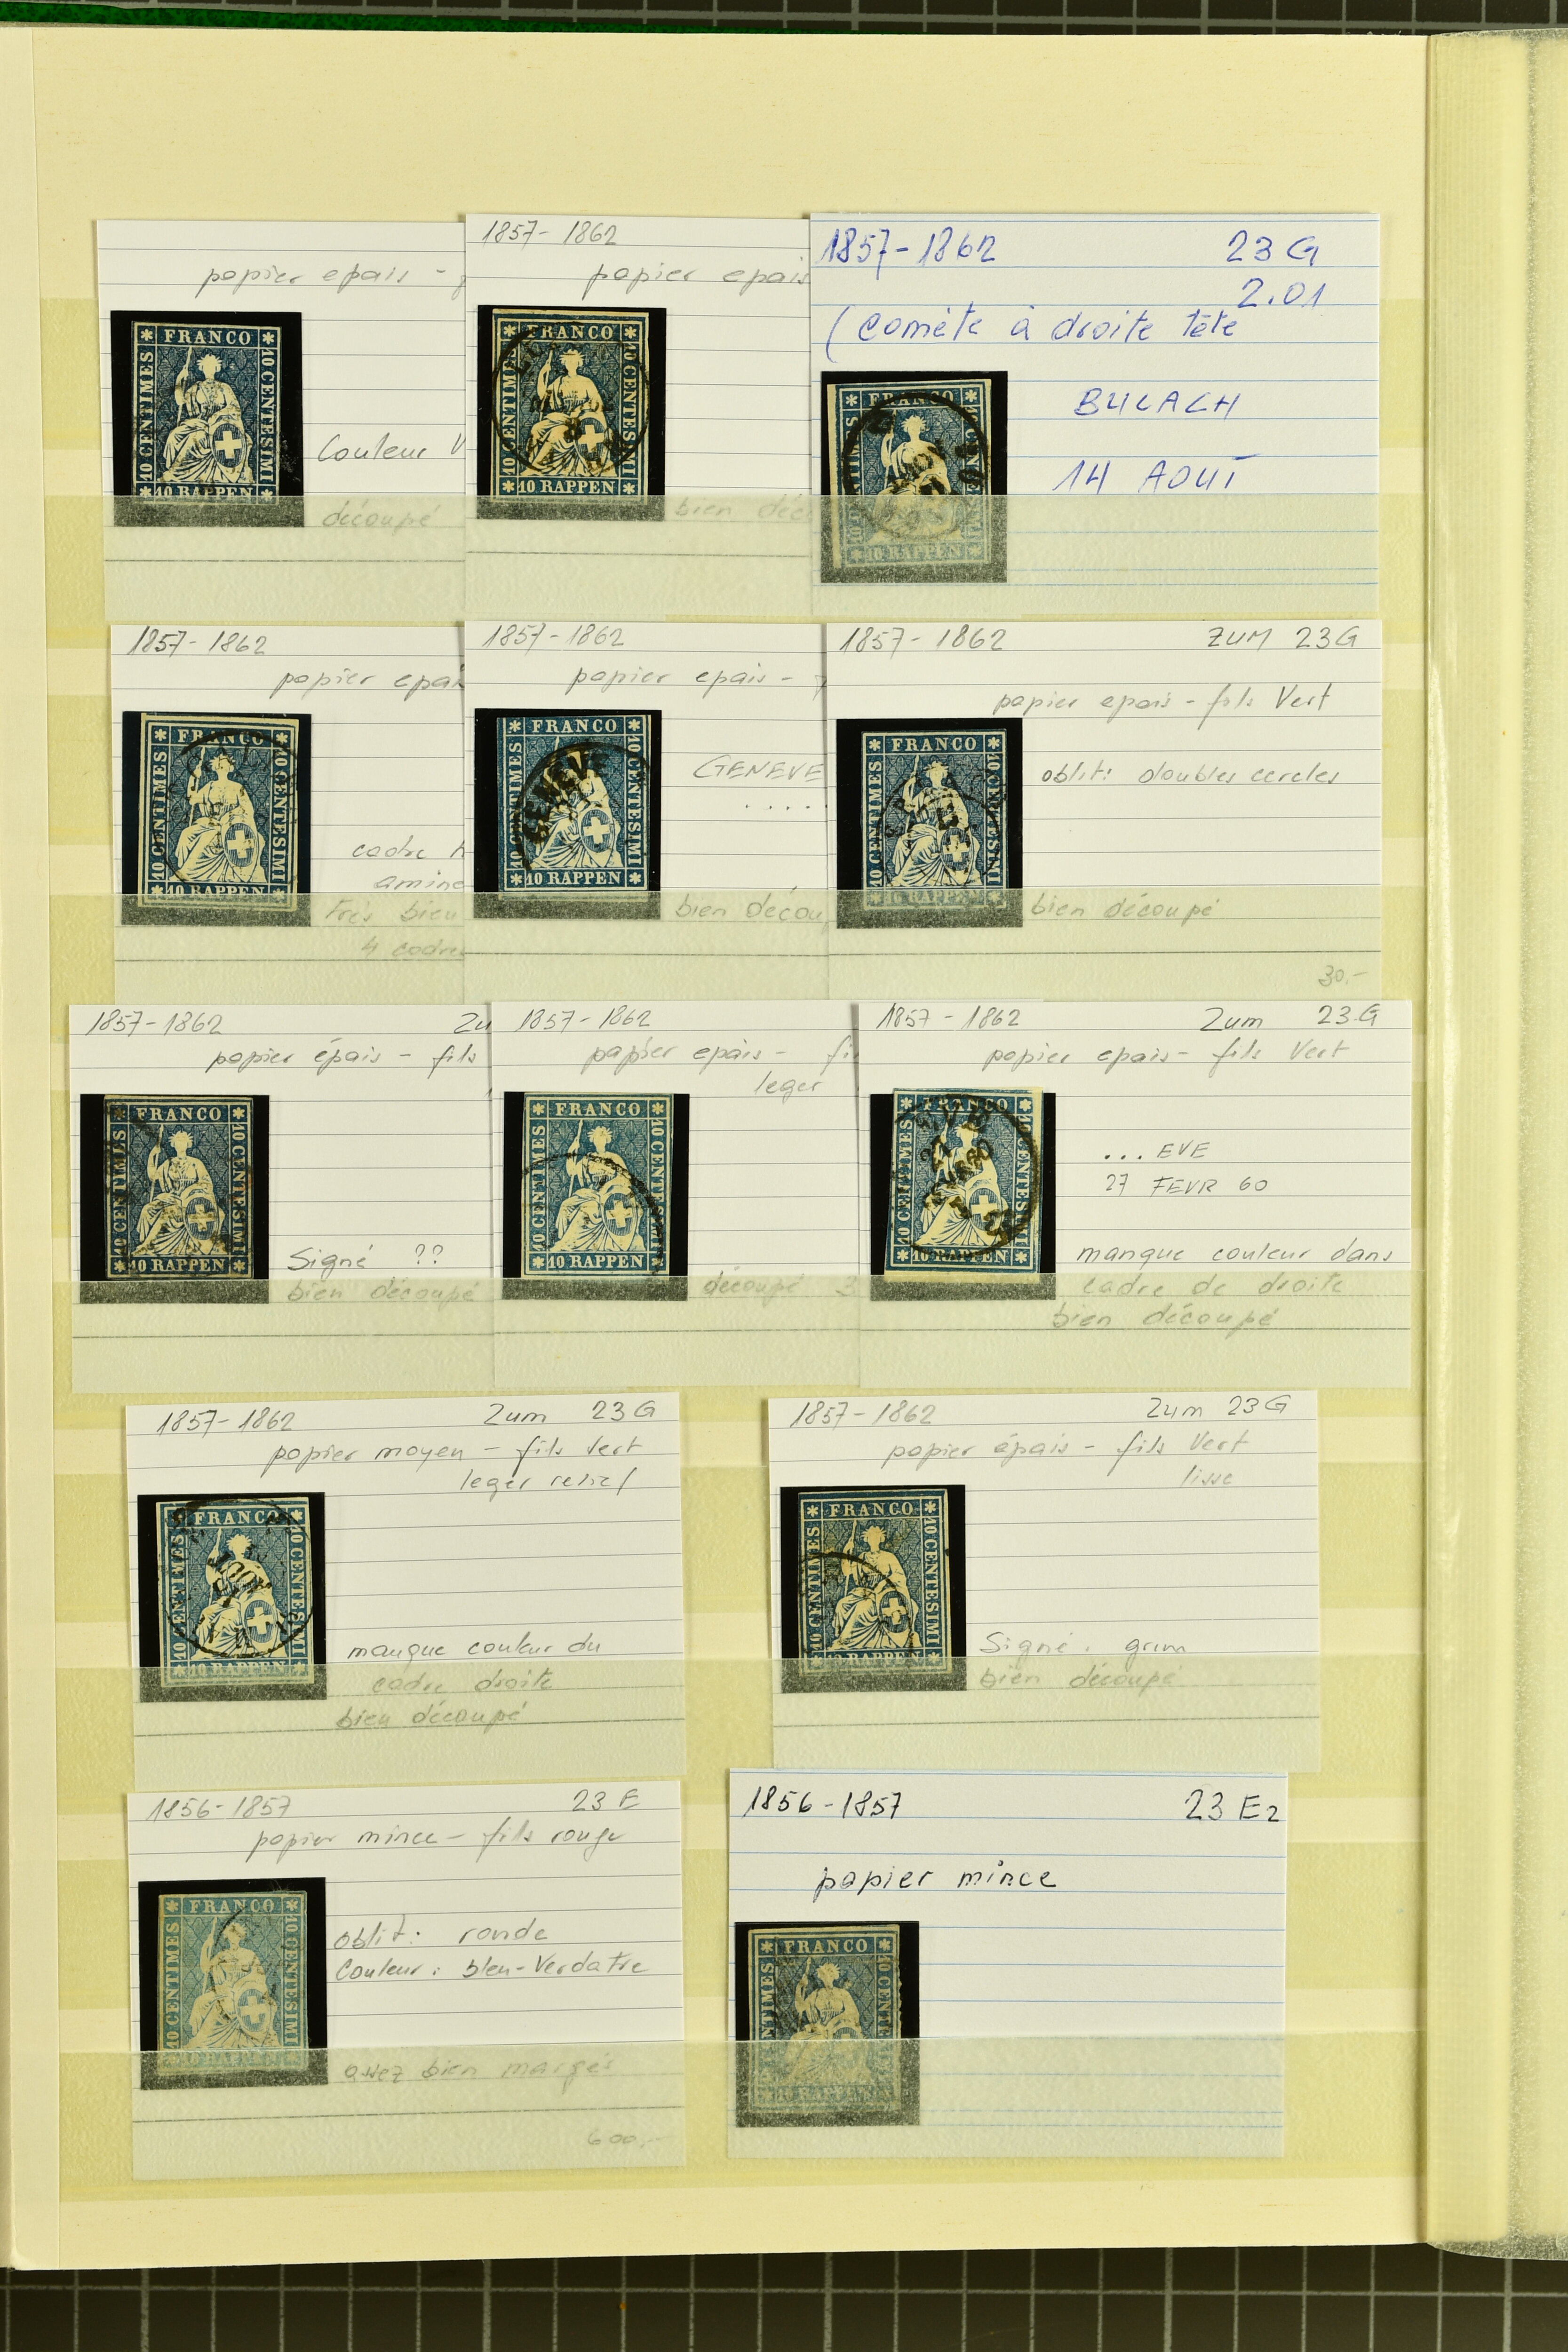 papier epais -
FRANCO
10 CENTIMES
10 CENTESIMI
10 RAPPEN
Couleur V
découpé
1857-1862
papier epais
FRANCO
10 CENTIMES
10 CENTESIMI
10 RAPPEN
bien déc
1857-1862 23 G
2.01
(comète à droite tête
FRANCO
10 RAPPEN
BULACH
14 AOUT
1857-1862
papier epais
FRANCO
10 CENTIMES
10 CENTESIMI
10 RAPPEN
cadre
aminc
très bien
4 cadres
1857-1862
papier epais -
FRANCO
10 CENTIMES
10 CENTESIMI
10 RAPPEN
GENEVE
GENEVE
.....
bien décou
1857-1862 ZUM 23G
papier epais - fils Vert
FRANCO
10 CENTIMES
10 CENTESIMI
10 RAPPEN
oblit: doubles cercles
bien découpé
30.-
1857-1862 Zu
papier épais - fils
FRANCO
10 CENTIMES
10 CENTESIMI
10 RAPPEN
Signé ??
bien découpé
1857-1862
papier epais - fi
leger
FRANCO
10 CENTIMES
10 CENTESIMI
10 RAPPEN
découpé 3
1857-1862 Zum 23G
papier epais - fils Vert
FRANCO
10 CENTIMES
10 CENTESIMI
10 RAPPEN
... EVE
27 FEVR 60
manque couleur dans
cadre de droite
bien découpé
1857-1862 Zum 23G
papier moyen - fils Vert
leger relief
FRANCO
10 CENTIMES
10 CENTESIMI
10 RAPPEN
manque couleur du
cadre droite
bien découpé
1857-1862 Zum 23G
papier épais - fils Vert
lisse
FRANCO
10 CENTIMES
10 CENTESIMI
10 RAPPEN
Signé: grim
bien découpé
1856-1857 23 E
papier mince - fils rouge
FRANCO
10 CENTIMES
10 CENTESIMI
10 RAPPEN
oblit: ronde
Couleur: bleu-Verdatre
assez bien margés
600.-
1856-1857 23 E2
papier mince
FRANCO
10 RAPPEN